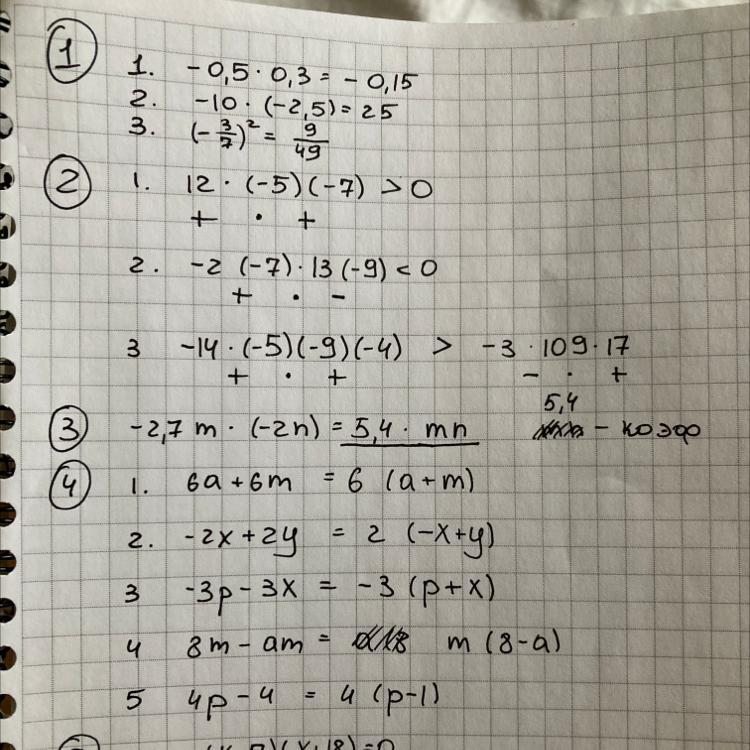 ① 1. -0,5 · 0,3 = -0,15
2. -10 · (-2,5) = 25
3. (-3/7)² = 9/49
② 1. 12 · (-5)(-7) > 0
+ · +
2. -2 (-7) · 13 (-9) < 0
+ · -
3 -14 · (-5)(-9)(-4) > -3 · 109 · 17
+ · + - · +
5,4
③ -2,7 m · (-2n) = 5,4 · mn - коэф
④ 1. 6a + 6m = 6 (a+m)
2. -2x + 2y = 2 (-x+y)
3 -3p - 3x = -3 (p+x)
4 8m - am = m (8-a)
5 4p - 4 = 4 (p-1)